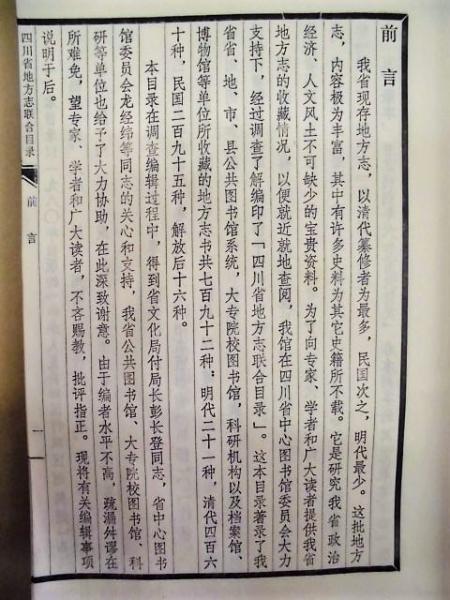 前言
我省现存地方志，以清代纂修者为最多，民国次之，明代最少。这批地方
志，内容极为丰富，其中有许多史料为其它史籍所不载。它是研究我省政治
经济、人文风土不可缺少的宝贵资料。为了向专家、学者和广大读者提供我省
地方志的收藏情况，以便就近就地查阅，我馆在四川省中心图书馆委员会大力
支持下，经过调查了解编印了「四川省地方志联合目录」。这本目录著录了我
省省、地、市、县公共图书馆系统，大专院校图书馆，科研机构以及档案馆、
博物馆等单位所收藏的地方志书共七百九十二种：明代二十一种，清代四百六
十种，民国二百九十五种，解放后十六种。
本目录在调查编辑过程中，得到省文化局付局长彭长登同志，省中心图书
馆委员会龙经纬等同志的关心和支持，我省公共图书馆、大专院校图书馆、科
研等单位也给予了大力协助，在此深致谢意。由于编者水平不高，疏漏舛谬在
所难免，望专家、学者和广大读者，不吝赐教，批评指正。现将有关编辑事项
说明于后。
四川省地方志联合目录
前言
一